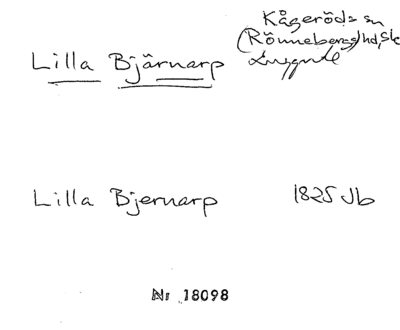 Kågeröds sn
Lilla Bjärnarp (Rönnebergs) hd, Sk
Luggude
Lilla Bjernarp 1825 Jb
Nr 18098